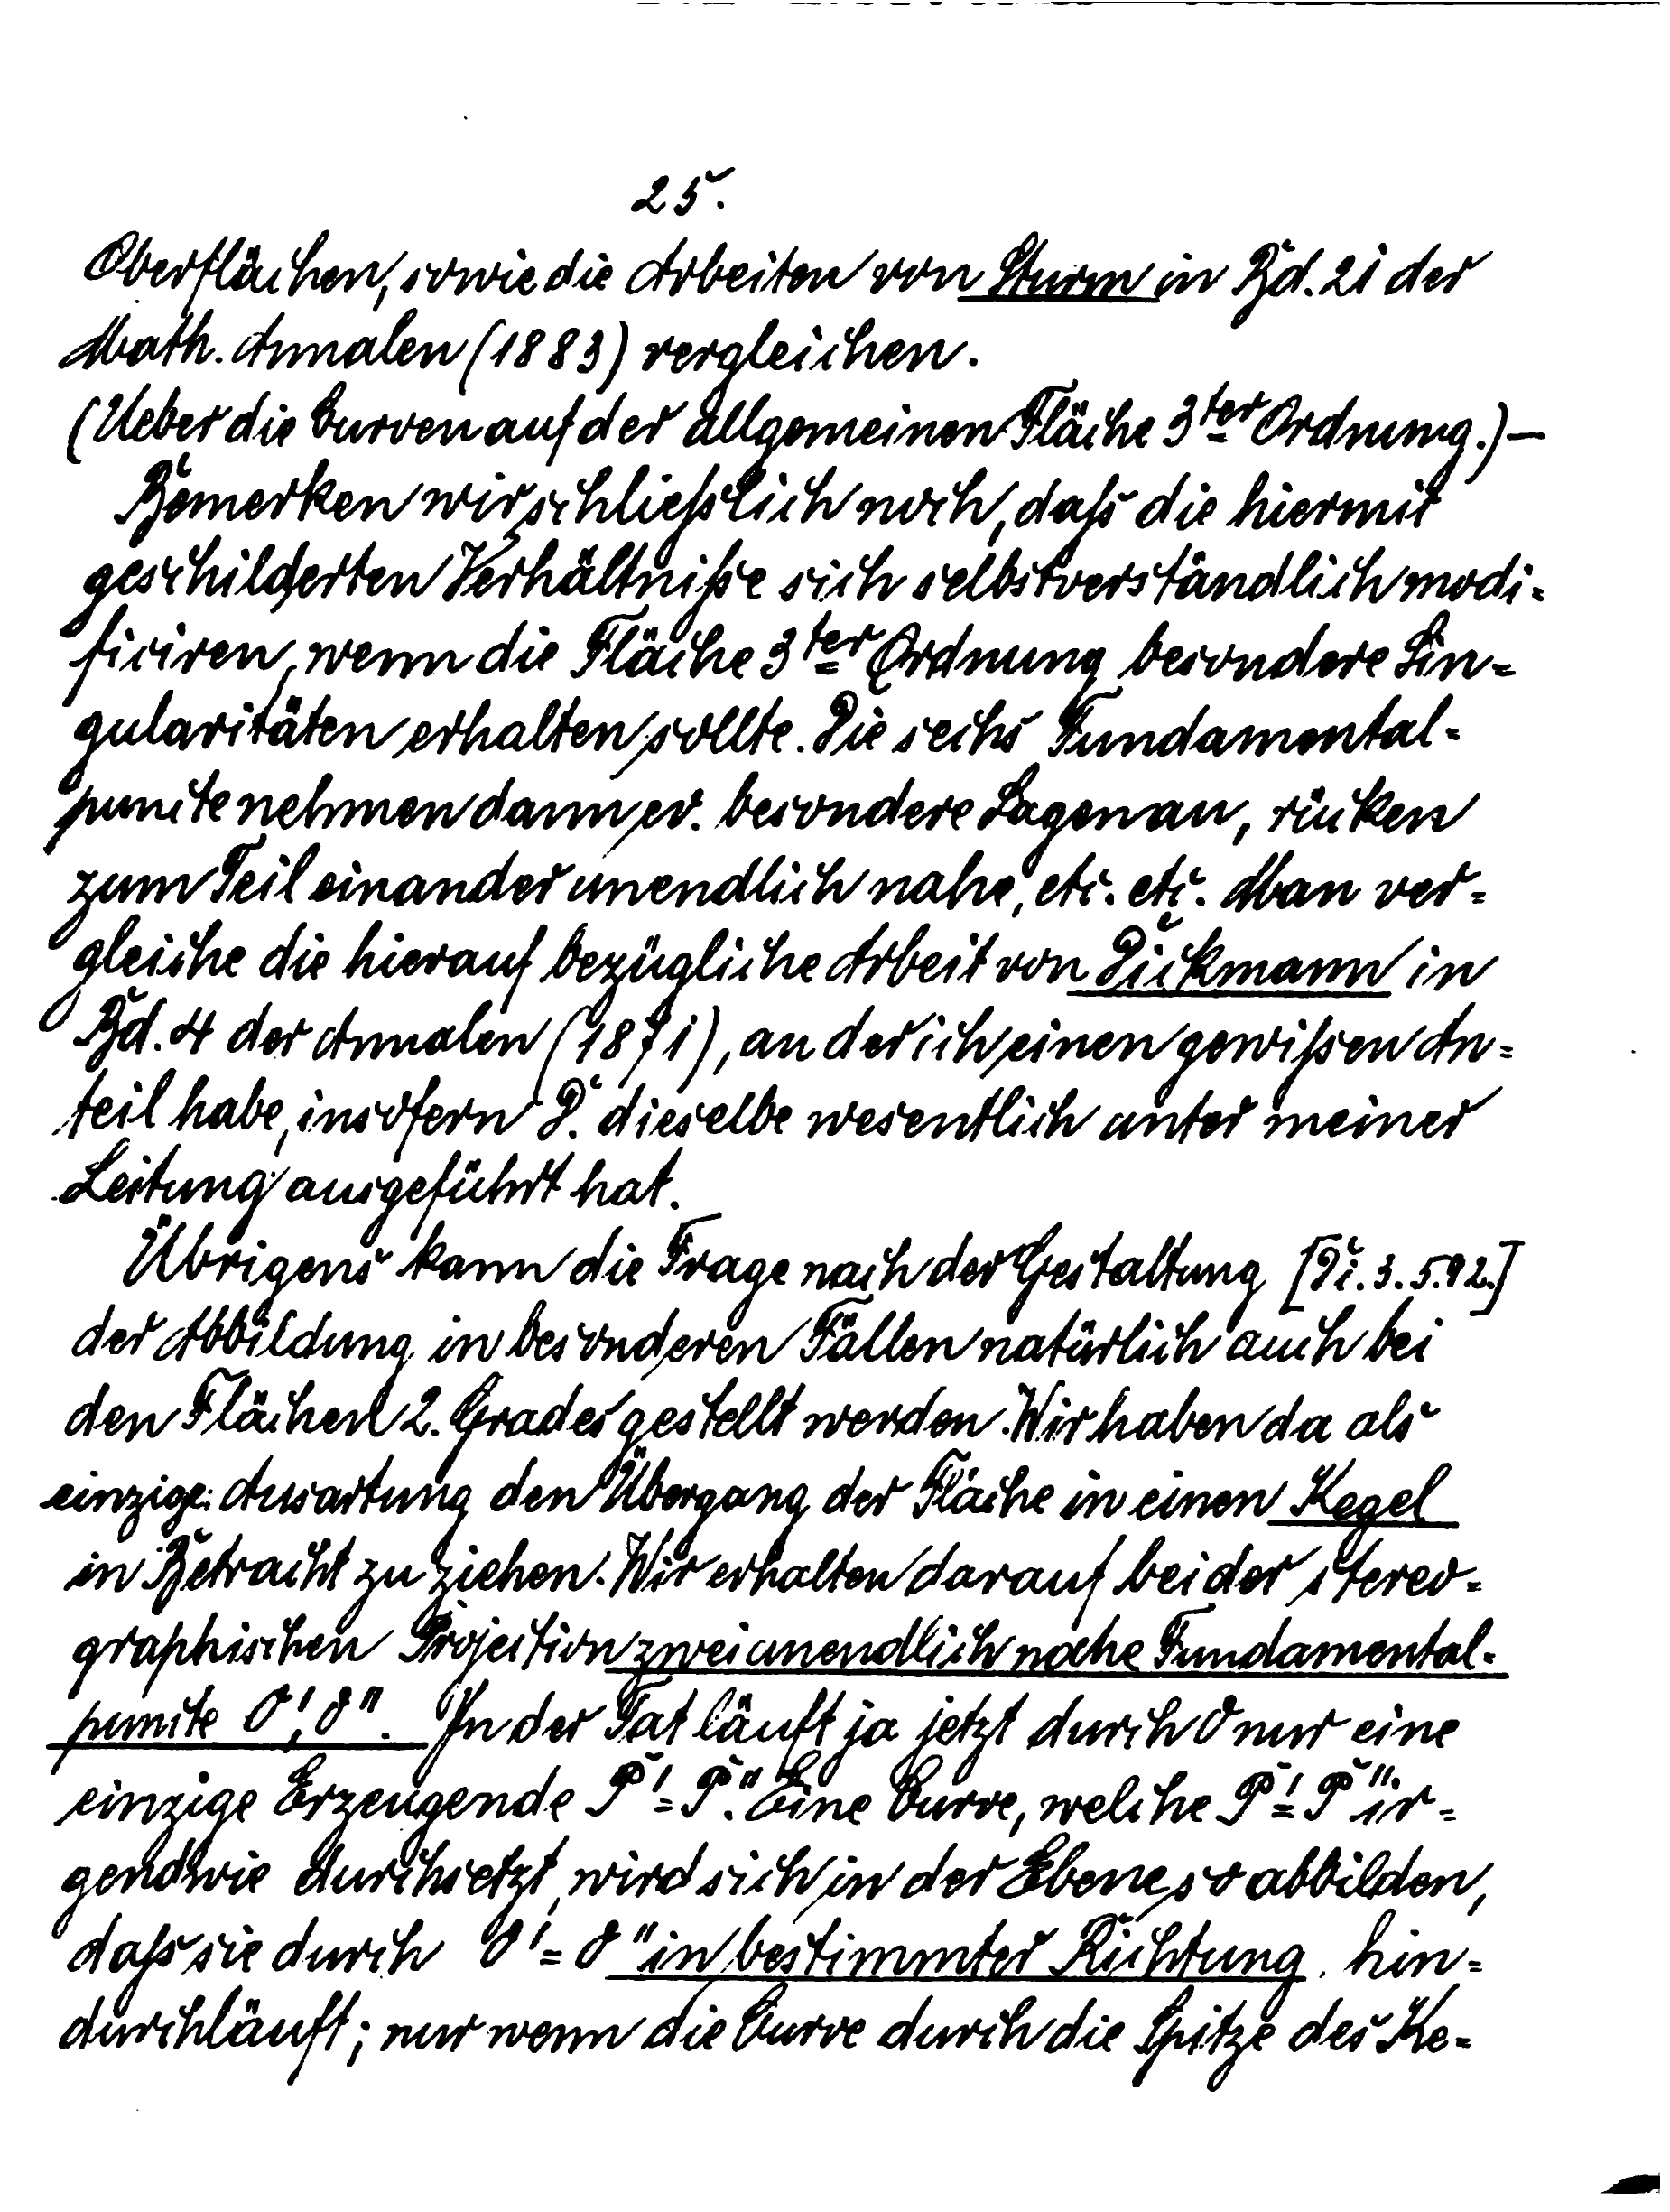 25.
Oberflächen, sowie die Arbeiten von Sturm in Bd. 21 der
Math. Annalen (1883) vergleichen.
(Ueber die Curven auf der allgemeinen Fläche 3ter Ordnung.) —
Bemerken wir schließlich noch, daß die hiermit
geschilderten Verhältniße sich selbstverständlich modi-
ficiren, wenn die Fläche 3ter Ordnung besondere Sin-
gularitäten erhalten sollte. Die sechs Fundamental-
puncte nehmen dann ev. besondere Lagen an, rücken
zum Teil einander unendlich nahe, etc. etc. Man ver-
gleiche die hierauf bezügliche Arbeit von Dickmann in
Bd. 4 der Annalen (1871), an der ich einen gewißen An-
teil habe, insofern D. dieselbe wesentlich unter meiner
Leitung ausgeführt hat.
Übrigens kann die Frage nach der Gestaltung [Di. 3. 5. 92.]
der Abbildung in besonderen Fällen natürlich auch bei
den Flächen 2. Grades gestellt werden. Wir haben da als
einzige Ausartung den Übergang der Fläche in einen Kegel
in Betracht zu ziehen. Wir erhalten darauf bei der stereo-
graphischen Projection zwei unendlich nahe Fundamental-
puncte O', O''. In der Tat läuft ja jetzt durch O nur eine
einzige Erzeugende P' = P''. Eine Curve, welche P' = P'' ir-
gendwie durchsetzt, wird sich in der Ebene so abbilden,
daß sie durch O' = O'' in bestimmter Richtung hin-
durchläuft; nur wenn die Curve durch die Spitze des Ke-